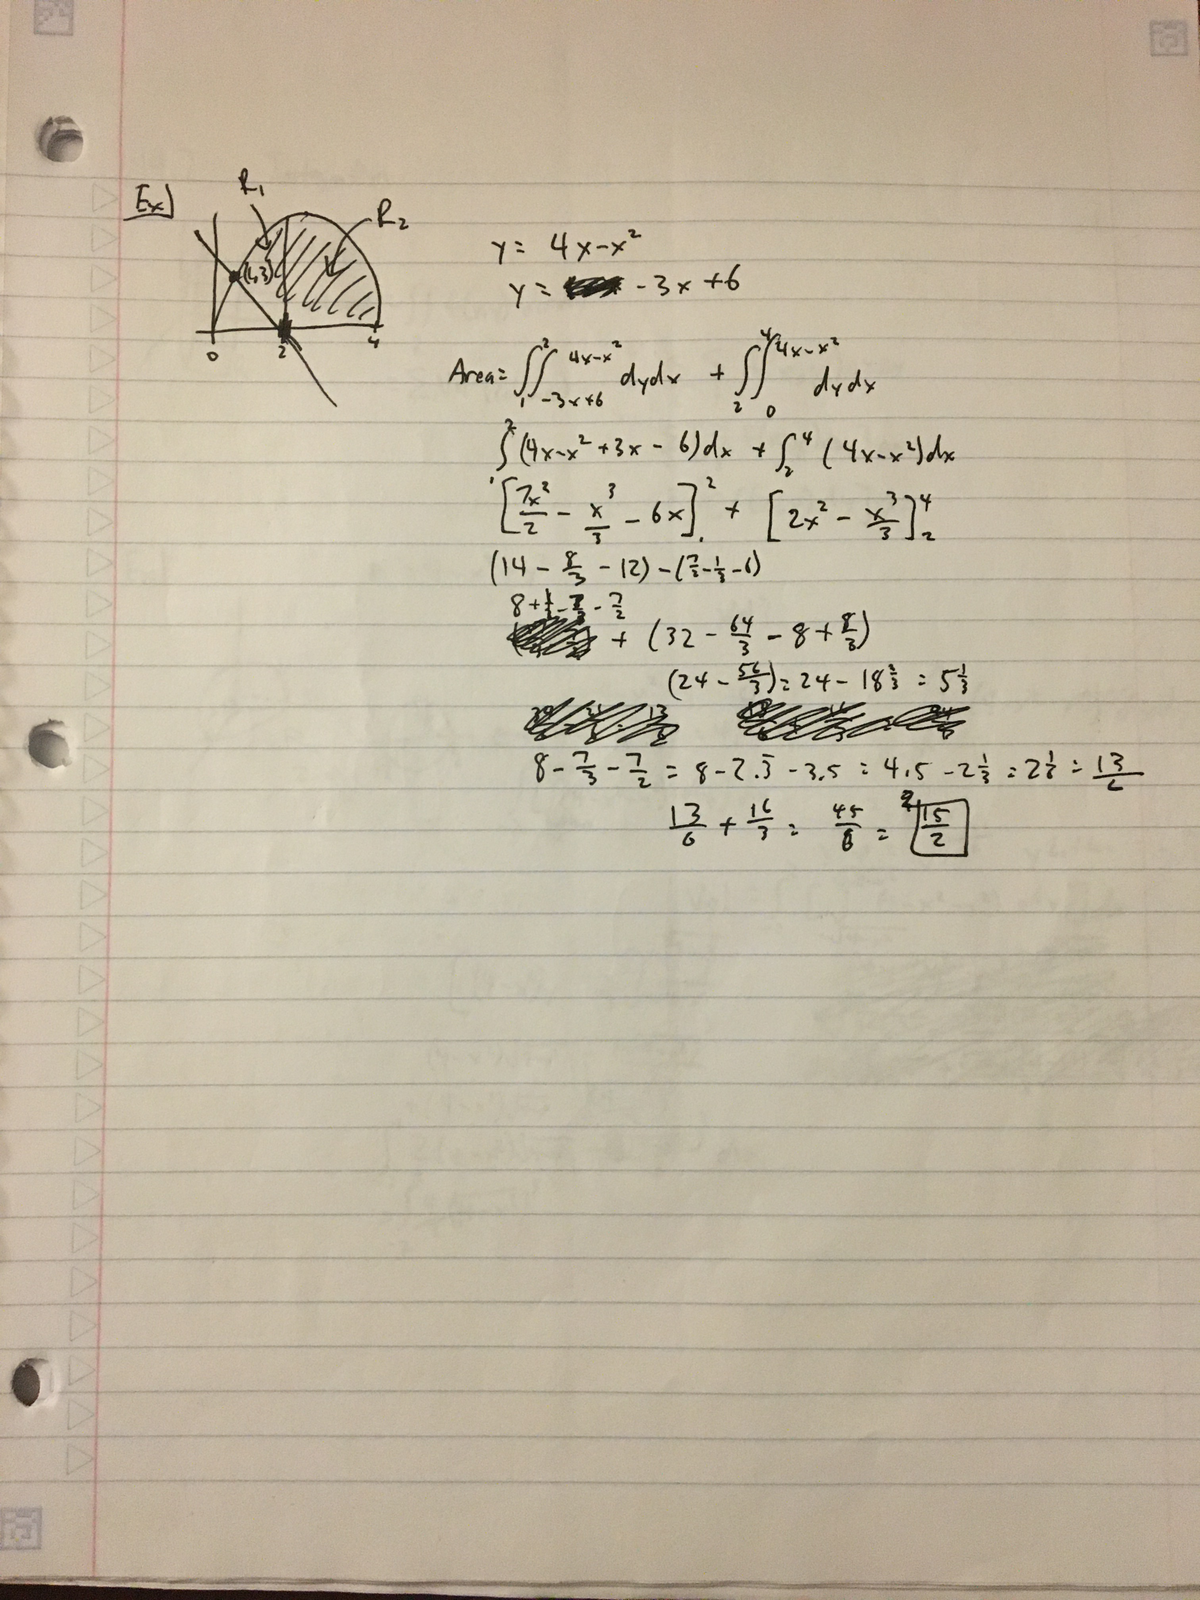 Ex)
R₁
R₂
(1,3)
0 2 4
y = 4x-x²
y = -3x+6
Area = ∫₁²∫_{-3x+6}^{4x-x²} dydx + ∫₂⁴∫₀^{4x-x²} dydx
∫₁² (4x-x²+3x-6)dx + ∫₂⁴ (4x-x²)dx
[7x²/2 - x³/3 - 6x]₁² + [2x² - x³/3]₂⁴
(14 - 8/3 - 12) - (7/2 - 1/3 - 6)
8 + 1/3 - 8/3 - 7/2
+ (32 - 64/3 - 8 + 8/3)
(24 - 56/3) = 24 - 18 2/3 = 5 1/3
8 - 7/3 - 7/2 = 8 - 2.3̅ - 3.5 = 4.5 - 2 1/3 = 2 1/6 = 13/6
13/6 + 16/3 = 45/6 = 15/2